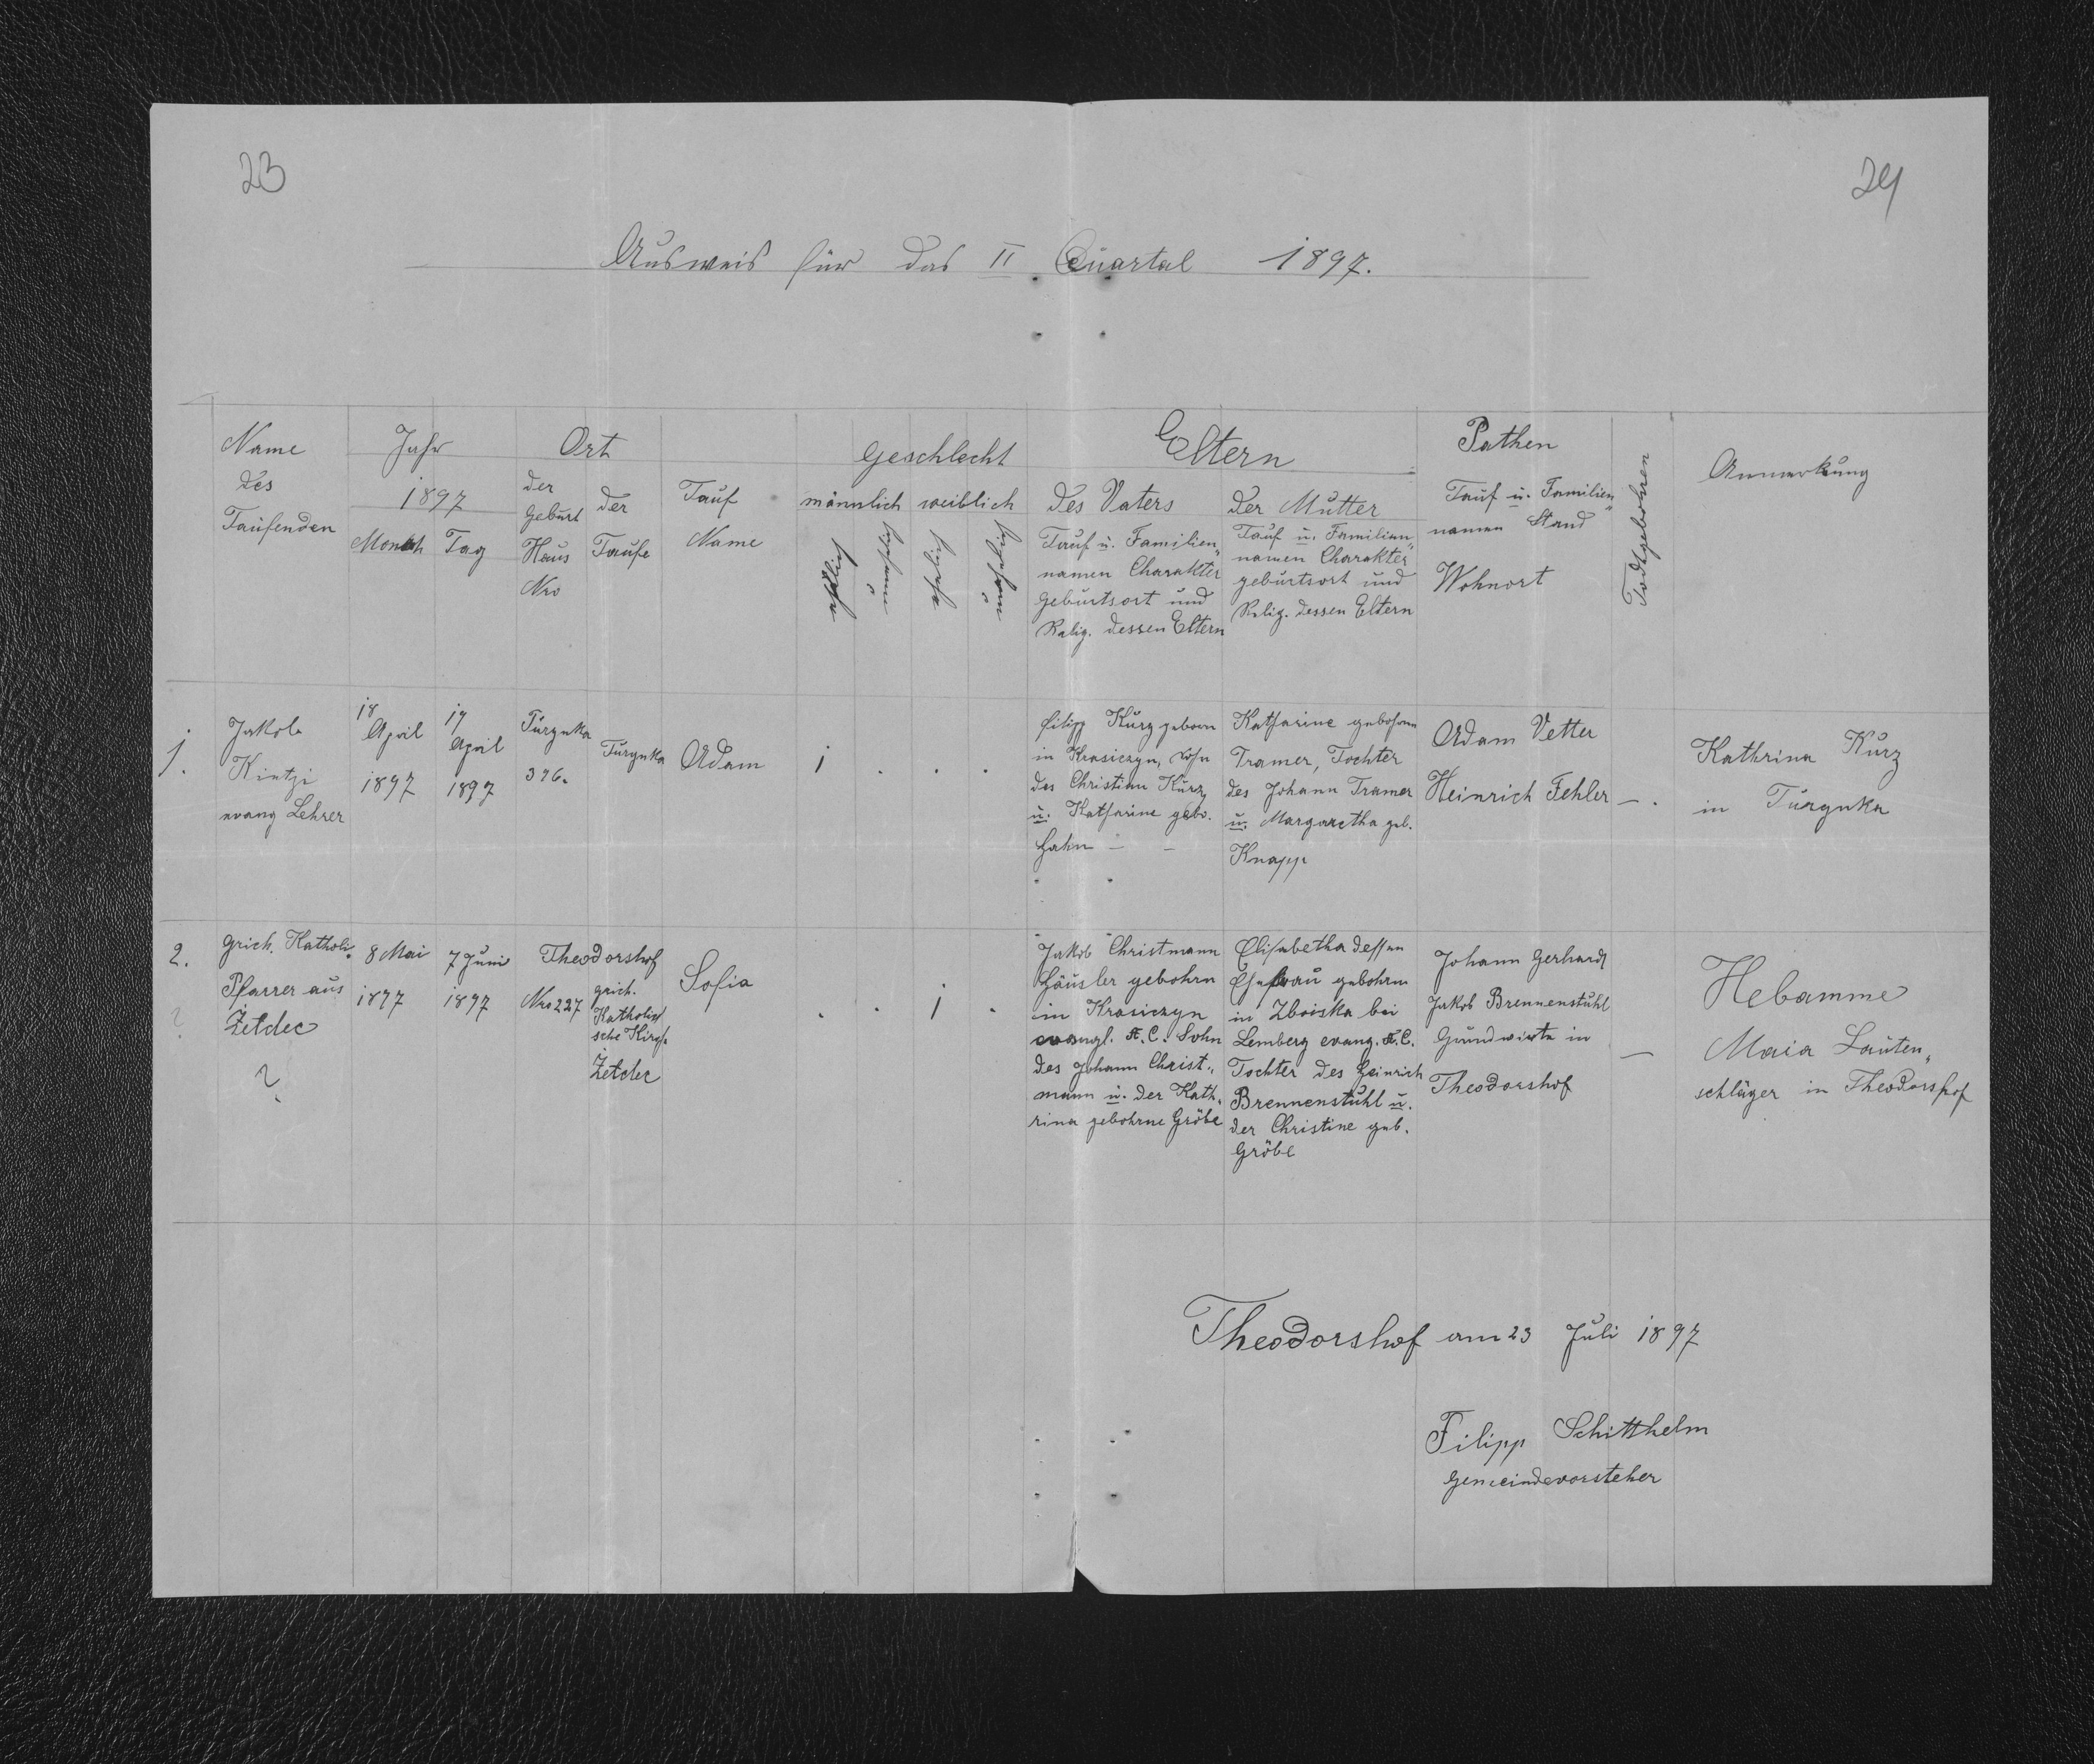 23
24
Ausweis für das II Quartal 1897.
Name
des
Taufenden
Jahr
1897
Monath Tag
Ort
der
Geburt
Haus
Nro
der
Taufe
Tauf
Name
Geschlecht
männlich weiblich
ehelich
unehelich
ehelich
Eltern
des Vaters
Tauf u. Familien„
namen Charakter
geburtsort und
Relig. dessen Eltern
der Mutter
Tauf u. Familien„
namen Charakter
geburtsort und
Relig. dessen Eltern
Pathen
Tauf u. Familien„
namen Stand
Wohnort
Todtgebohren
Anmerkung
1.
Jakob
Kintzi
evang Lehrer
18
April
1897
19
April
1897
Turynka
376.
Turynka
Adam
1 . . .
Filipp Kurz geboren
in Krasiczyn, Sohn
des Christian Kurz
u. Katharine gebo.
Hahn — —
Katharine gebohrne
Tramer, Tochter
des Johann Tramer
u. Margaretha geb.
Knapp
Adam Vetter
Heinrich Fehler
— .
Kathrina Kurz
in Turynka
2.
grich. Katholi.
Pfarrer aus
Żeldec
?
8 Mai
1897
7 Juni
1897
Theodorshof
Nro 227
grich.
Katholi
sche Kirche
Żeldec
Sofia
. . 1 .
Jakob Christmann
Häusler gebohrn
in Krasiczyn
evangl. A. C. Sohn
des Johann Christ„
mann u. der Kath„
rina gebohrne Gröbe
Elisabetha dessen
Ehefrau gebohrne
in Zboiska bei
Lemberg evang. A. C.
Tochter des Heinrich
Brennenstuhl u.
der Christine geb.
Gröbe
Johann Gerhardt
Jakob Brennenstuhl
Grundwirte in
Theodorshof
—
Hebamme
Maia Lauten„
schläger in Theodorshof
Theodorshof am 23 Juli 1897
Filipp Schitthelm
Gemeindevorsteher